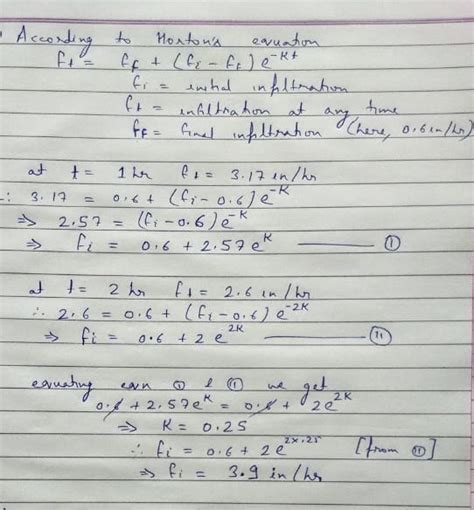 According to Horton's equation
ft = ff + (fi - ft) e^-Kt
fi = initial infiltration
ft = infiltration at any time
ff = final infiltration (here, 0.6 in/hr)
at t = 1 hr ft = 3.17 in/hr
∴ 3.17 = 0.6 + (fi - 0.6) e^-K
⇒ 2.57 = (fi - 0.6) e^-K
⇒ fi = 0.6 + 2.57 e^K ——— (I)
at t = 2 hr ft = 2.6 in/hr
∴ 2.6 = 0.6 + (fi - 0.6) e^-2K
⇒ fi = 0.6 + 2 e^2K ——— (II)
equating eqn (I) & (II) we get
0.6 + 2.57 e^K = 0.6 + 2e^2K
⇒ K = 0.25
∴ fi = 0.6 + 2 e^2x.25 [from (II)]
⇒ fi = 3.9 in/hr